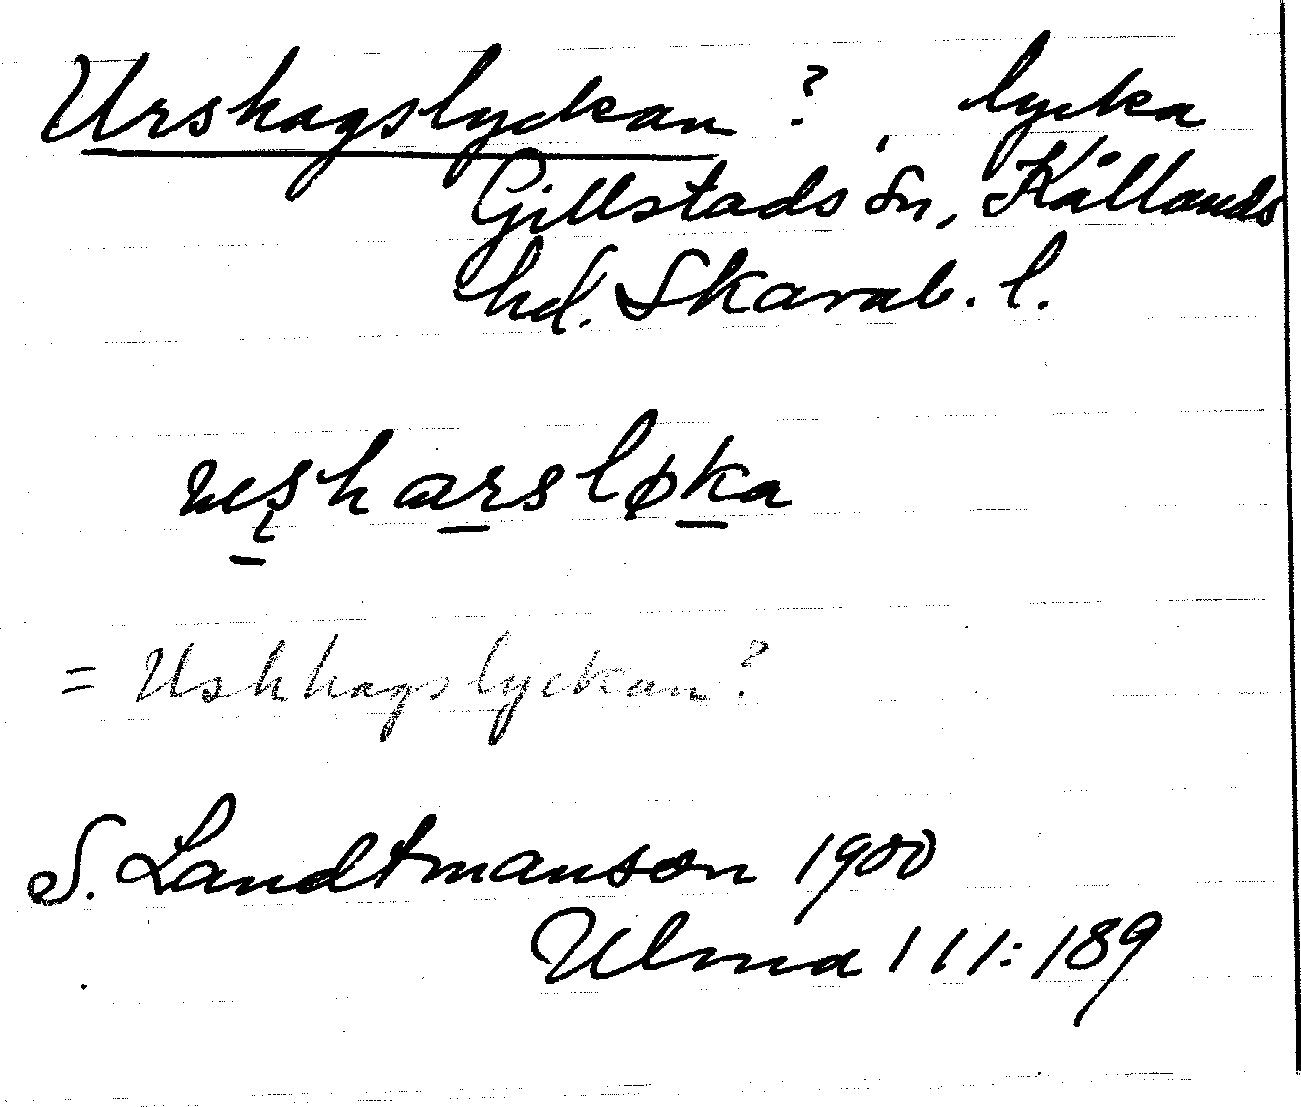 Urskagslyckan ?, lycka
Gillstads sn, Kållands
hd. Skarab. l.
uskarsløka
= Uskhagslyckan ?
S. Landtmanson 1900
Ulma 111:189